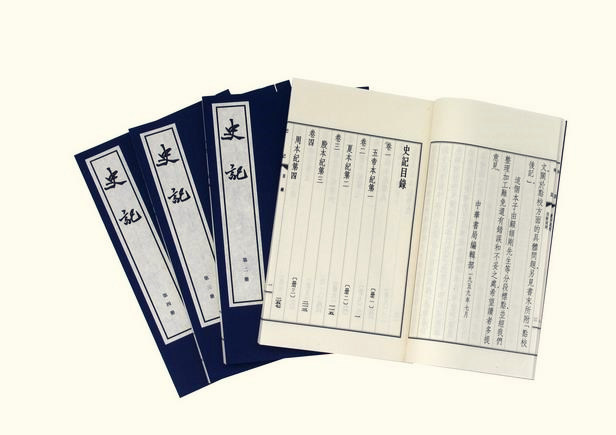 史記
第四册
史記
第三册
史記
第二册
文關於點校方面的具體問題另見書末所附「點校
後記」
這個本子由顧頡剛先生等分段標點並經我們
整理加工難免還有錯誤和不妥之處希望讀者多提
意見
中華書局編輯部
一九五九年七月
史記目錄
卷一
五帝本紀第一
〔册一〕
一
卷二
夏本紀第二
〔册二〕
卷三
殷本紀第三
卷四
周本紀第四
〔册三〕